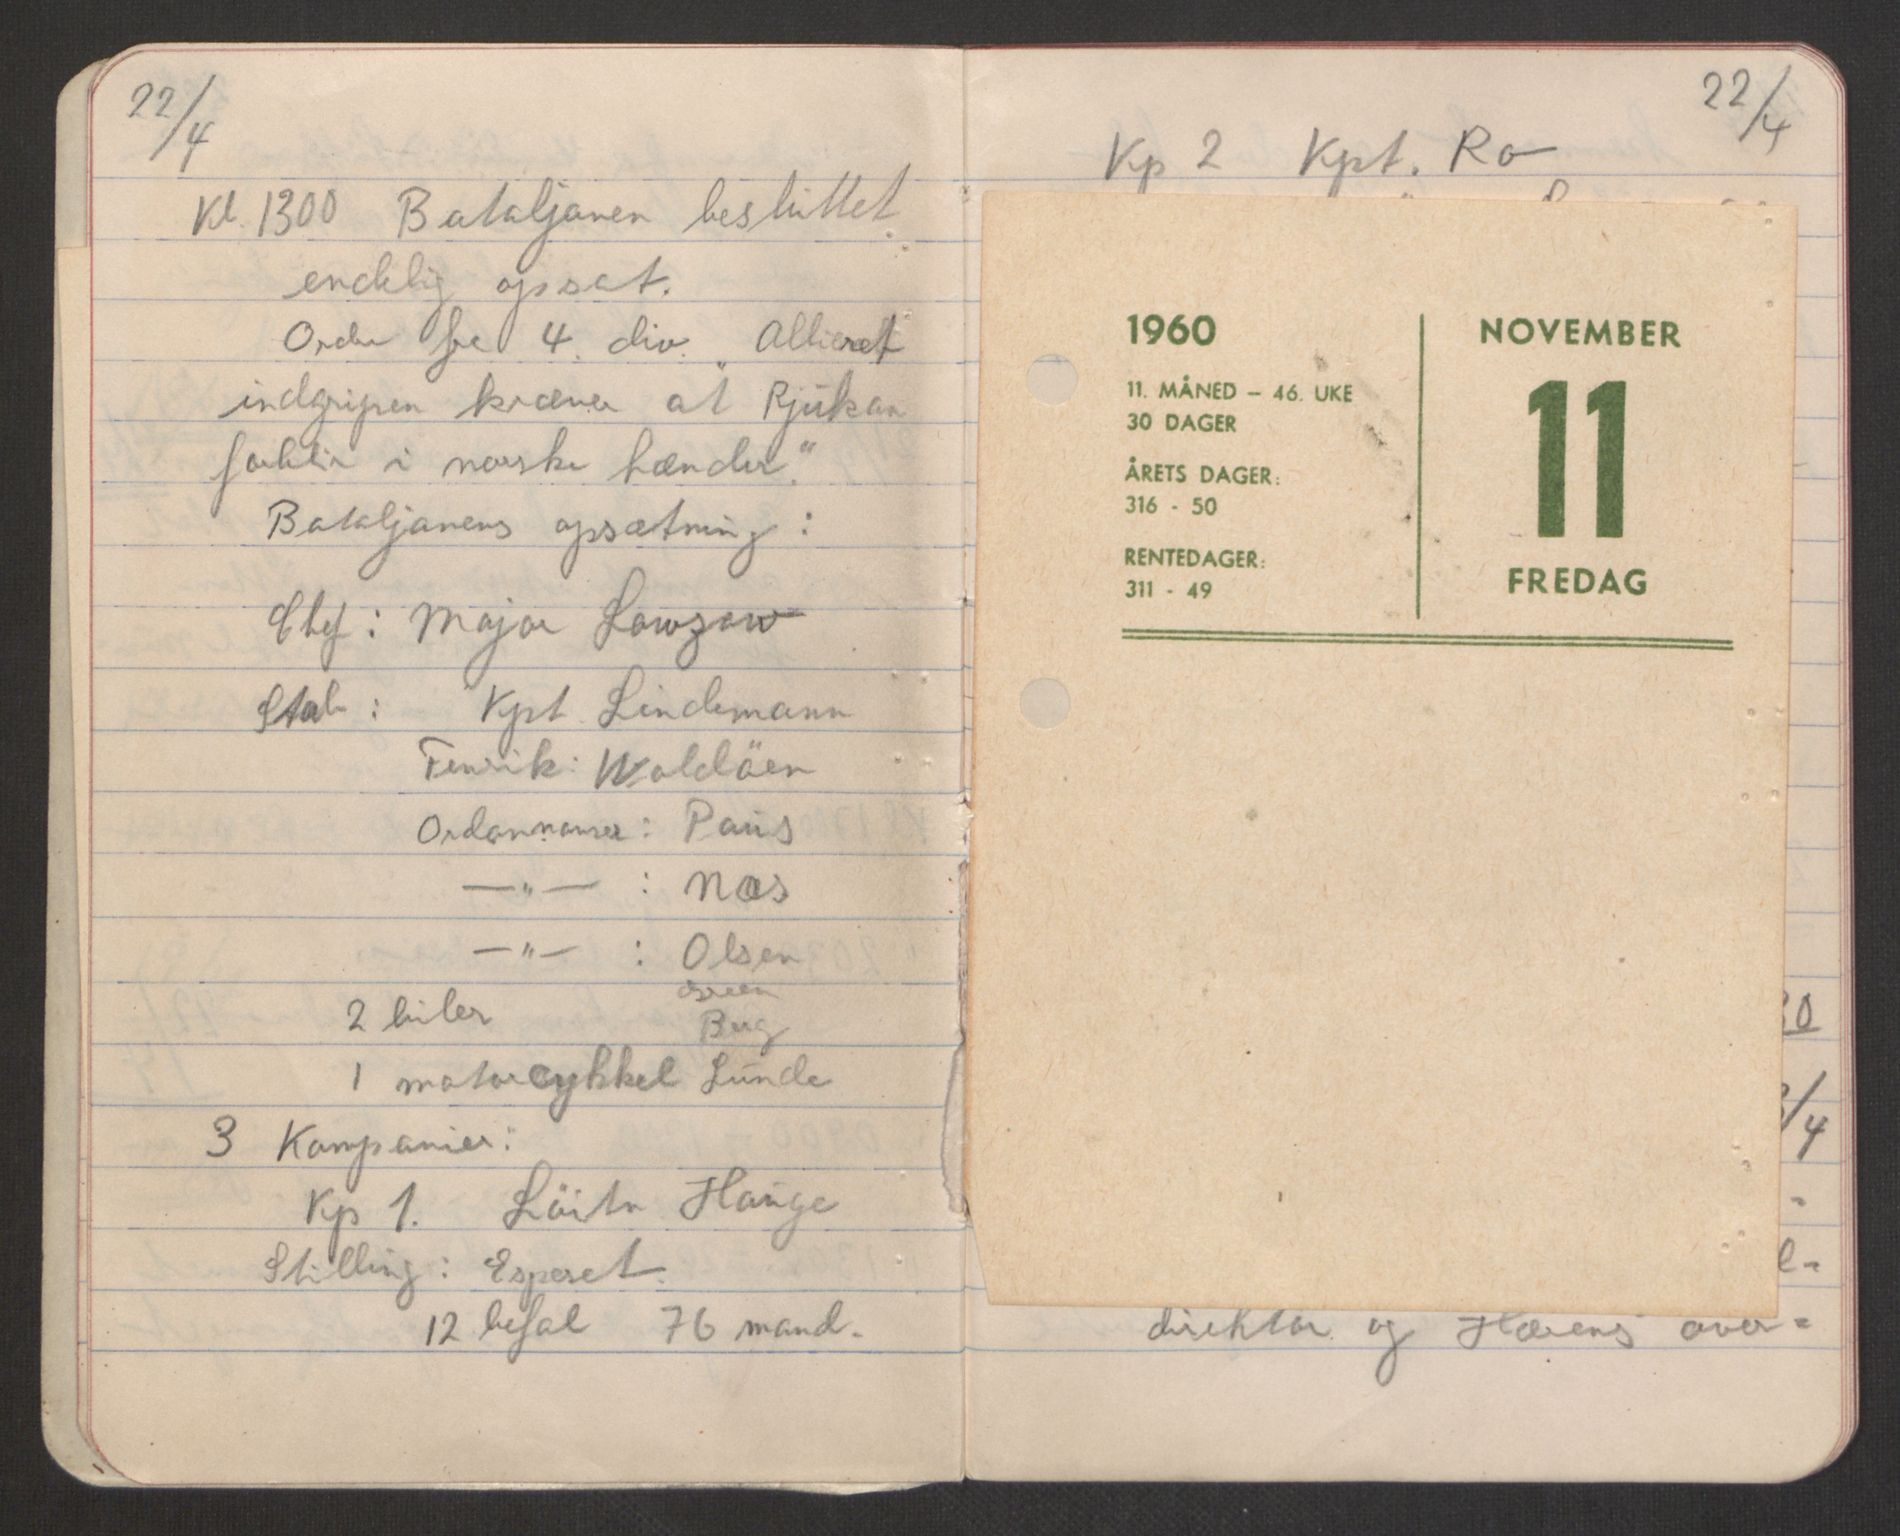 22/4
Kl. 1300 Bataljonen besluttet
endelig opsat.
Ordre fra 4. div. „Alliert
indgripen kræver at Rjukan
forblir i norske hænder."
Bataljonens opsætning :
Chef : Major Lowzow
Stab : Kpt Lindemann
Fenrik : Woldöen
Ordonnanser : Paus
—"— : Næs
—"— : Olsen
2 biler
Berg
1 motorcykkel Lunde
3 Kompanier :
Kp 1. Löitn Hauge
Stilling : Esperet.
12 befal 76 mand.
22/4
Kp 2 Kpt. Ro
1960
11. MÅNED – 46. UKE
30 DAGER
ÅRETS DAGER:
316 - 50
RENTEDAGER:
311 - 49
NOVEMBER
11
FREDAG
/4
direktor og Hærens over=